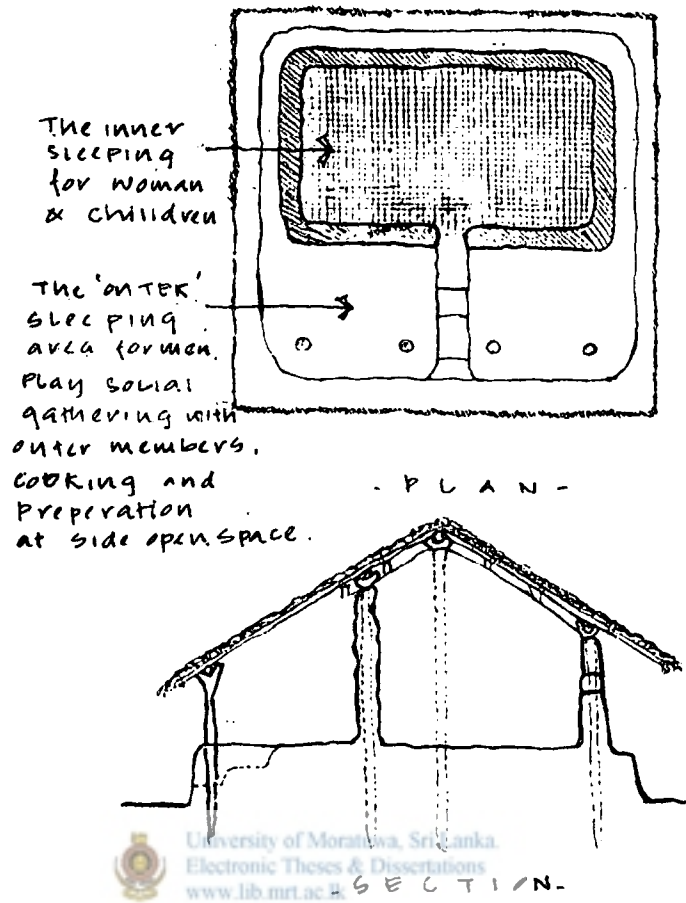 The inner
sleeping
for woman
& chilldren
The 'onTEK'
sleeping
area for men.
Play social
gathering with
outer members.
cooking and
preperation
at side open space.
- PLAN -
University of Moratuwa, Sri Lanka.
Electronic Theses & Dissertations
www.lib.mrt.ac.lk
- SECTION -